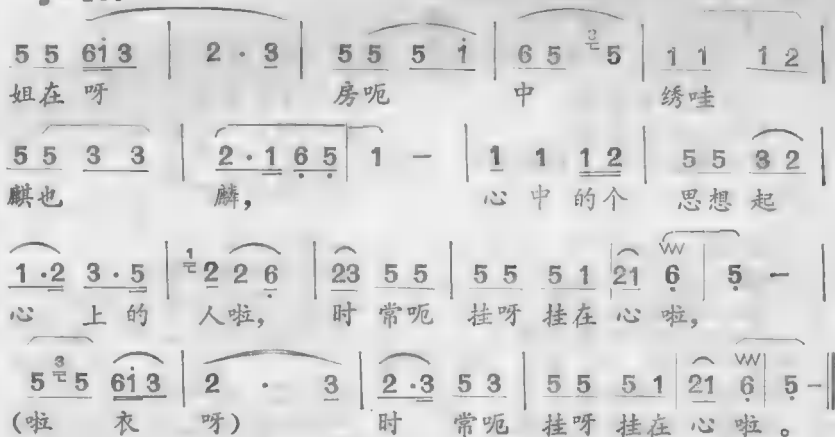 5 5 6i 3 | 2 · 3 | 5 5 5 i | 6 5 5 | 1 1 1 2 |
姐在 呀 房呃 中 绣哇
5 5 3 3 | 2 · 1 6 5 | 1 — | 1 1 1 2 | 5 5 3 2 |
麒也 麟, 心 中 的个 思想 起
1 · 2 3 · 5 | 1 2 2 6 | 23 5 5 | 5 5 5 1 | 21 6 | 5 — |
心 上 的 人啦, 时 常呃 挂呀 挂在 心 啦,
5 3 5 6i 3 | 2 · 3 | 2 · 3 5 3 | 5 5 5 1 | 21 6 | 5 — ‖
(啦 衣 呀) 时 常呃 挂呀 挂在 心 啦 。